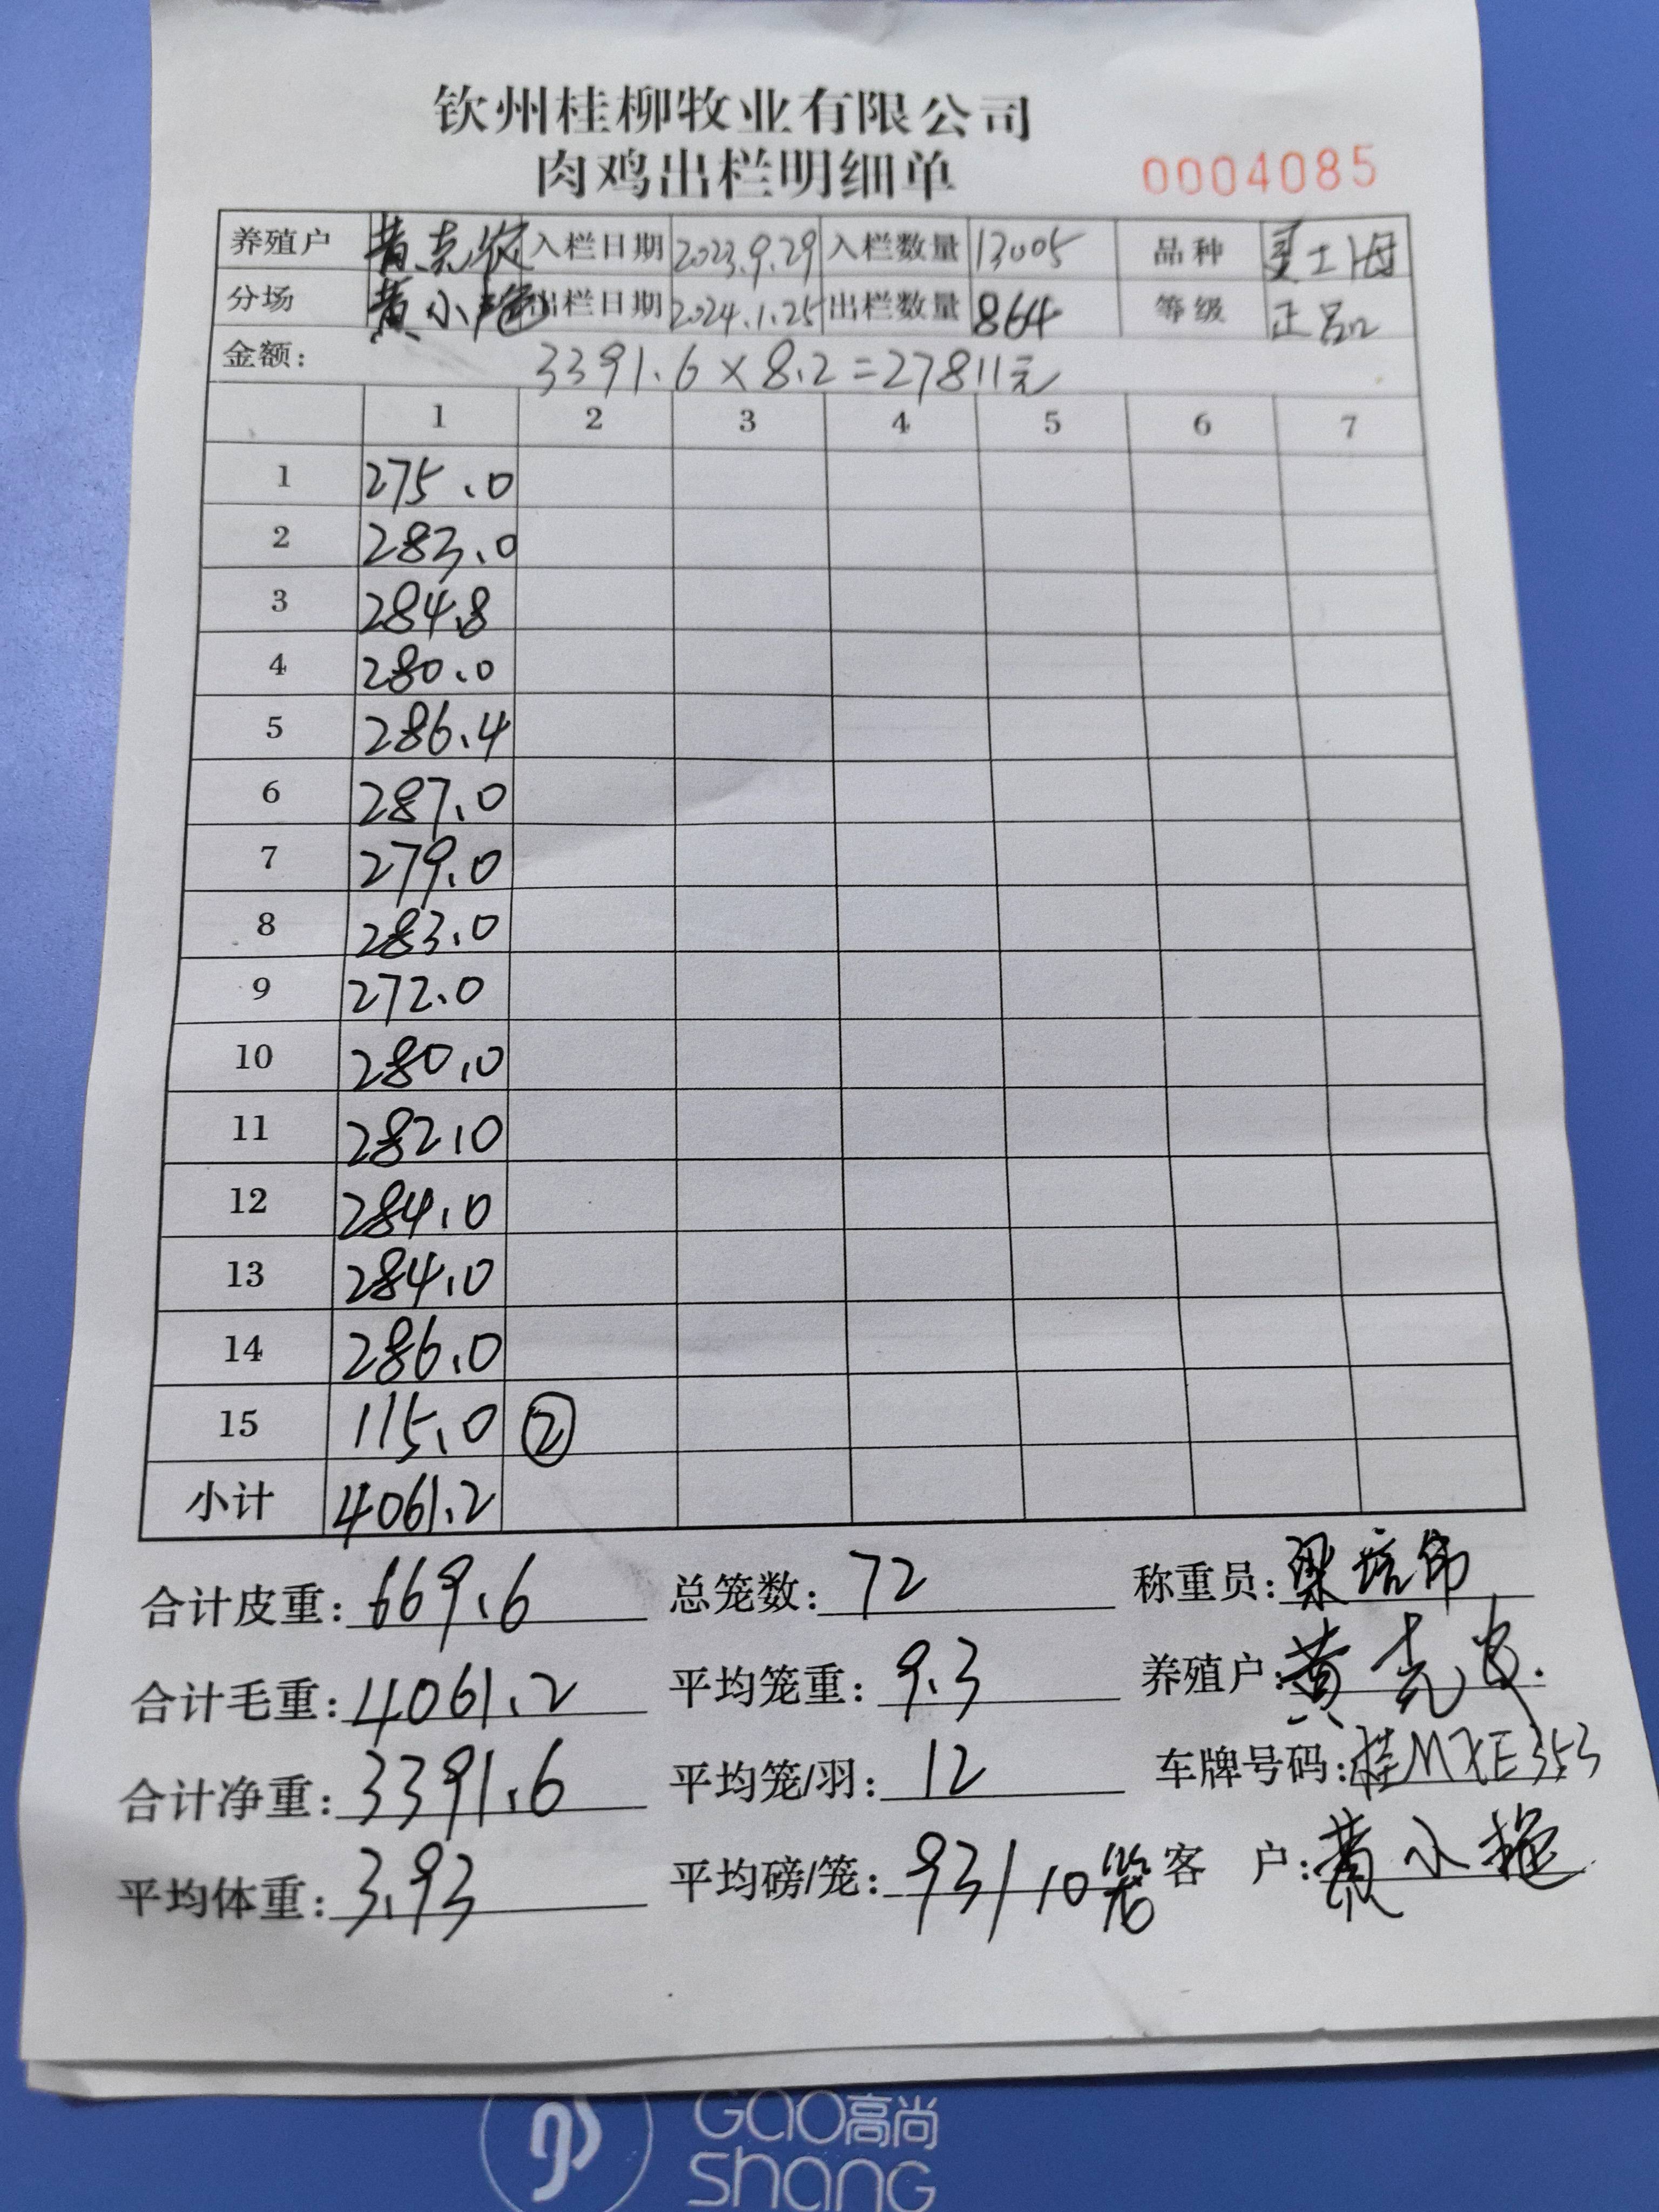 钦州桂柳牧业有限公司
肉鸡出栏明细单 0004085
养殖户 黄克 入栏日期 2023.9.29 入栏数量 13005 品种 土
分场 黄小艳 出栏日期 2024.1.25 出栏数量 864 等级 正品
金额: 3391.6×8.2=27811元
1 2 3 4 5 6 7
1 275.0
2 283.0
3 284.8
4 280.0
5 286.4
6 287.0
7 279.0
8 283.0
9 272.0
10 280.0
11 282.0
12 284.0
13 284.0
14 286.0
15 115.0 ②
小计 4061.2
合计皮重: 669.6 总笼数: 72 称重员: 梁培伟
合计毛重: 4061.2 平均笼重: 9.3 养殖户: 黄克
合计净重: 3391.6 平均笼/羽: 12 车牌号码: 桂MXE353
平均体重: 3.93 平均磅/笼: 93/10笼 客户: 黄小艳
Gao高尚
Shang